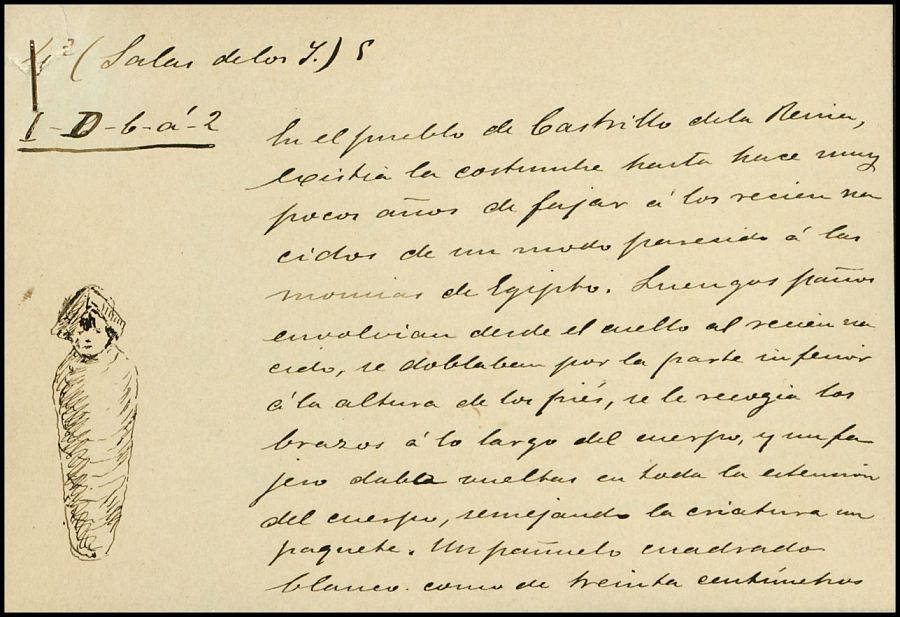 (Salas de los I.) 5
I-D-b-á-2
En el pueblo de Castrillo dela Reina,
existia la costumbre hasta hace muy
pocos años de fajar á los recien na
cidos de un modo parecido á las
momias de Egipto. Luengos paños
envolvian desde el cuello al recien na
cido, se doblaban por la parte inferior
á la altura de los piés, se le recogia los
brazos á lo largo del cuerpo, y un fa
jero daba vueltas en toda la extension
del cuerpo, semejando la criatura un
paquete. Un pañuelo cuadrado
blanco como de treinta centímetros